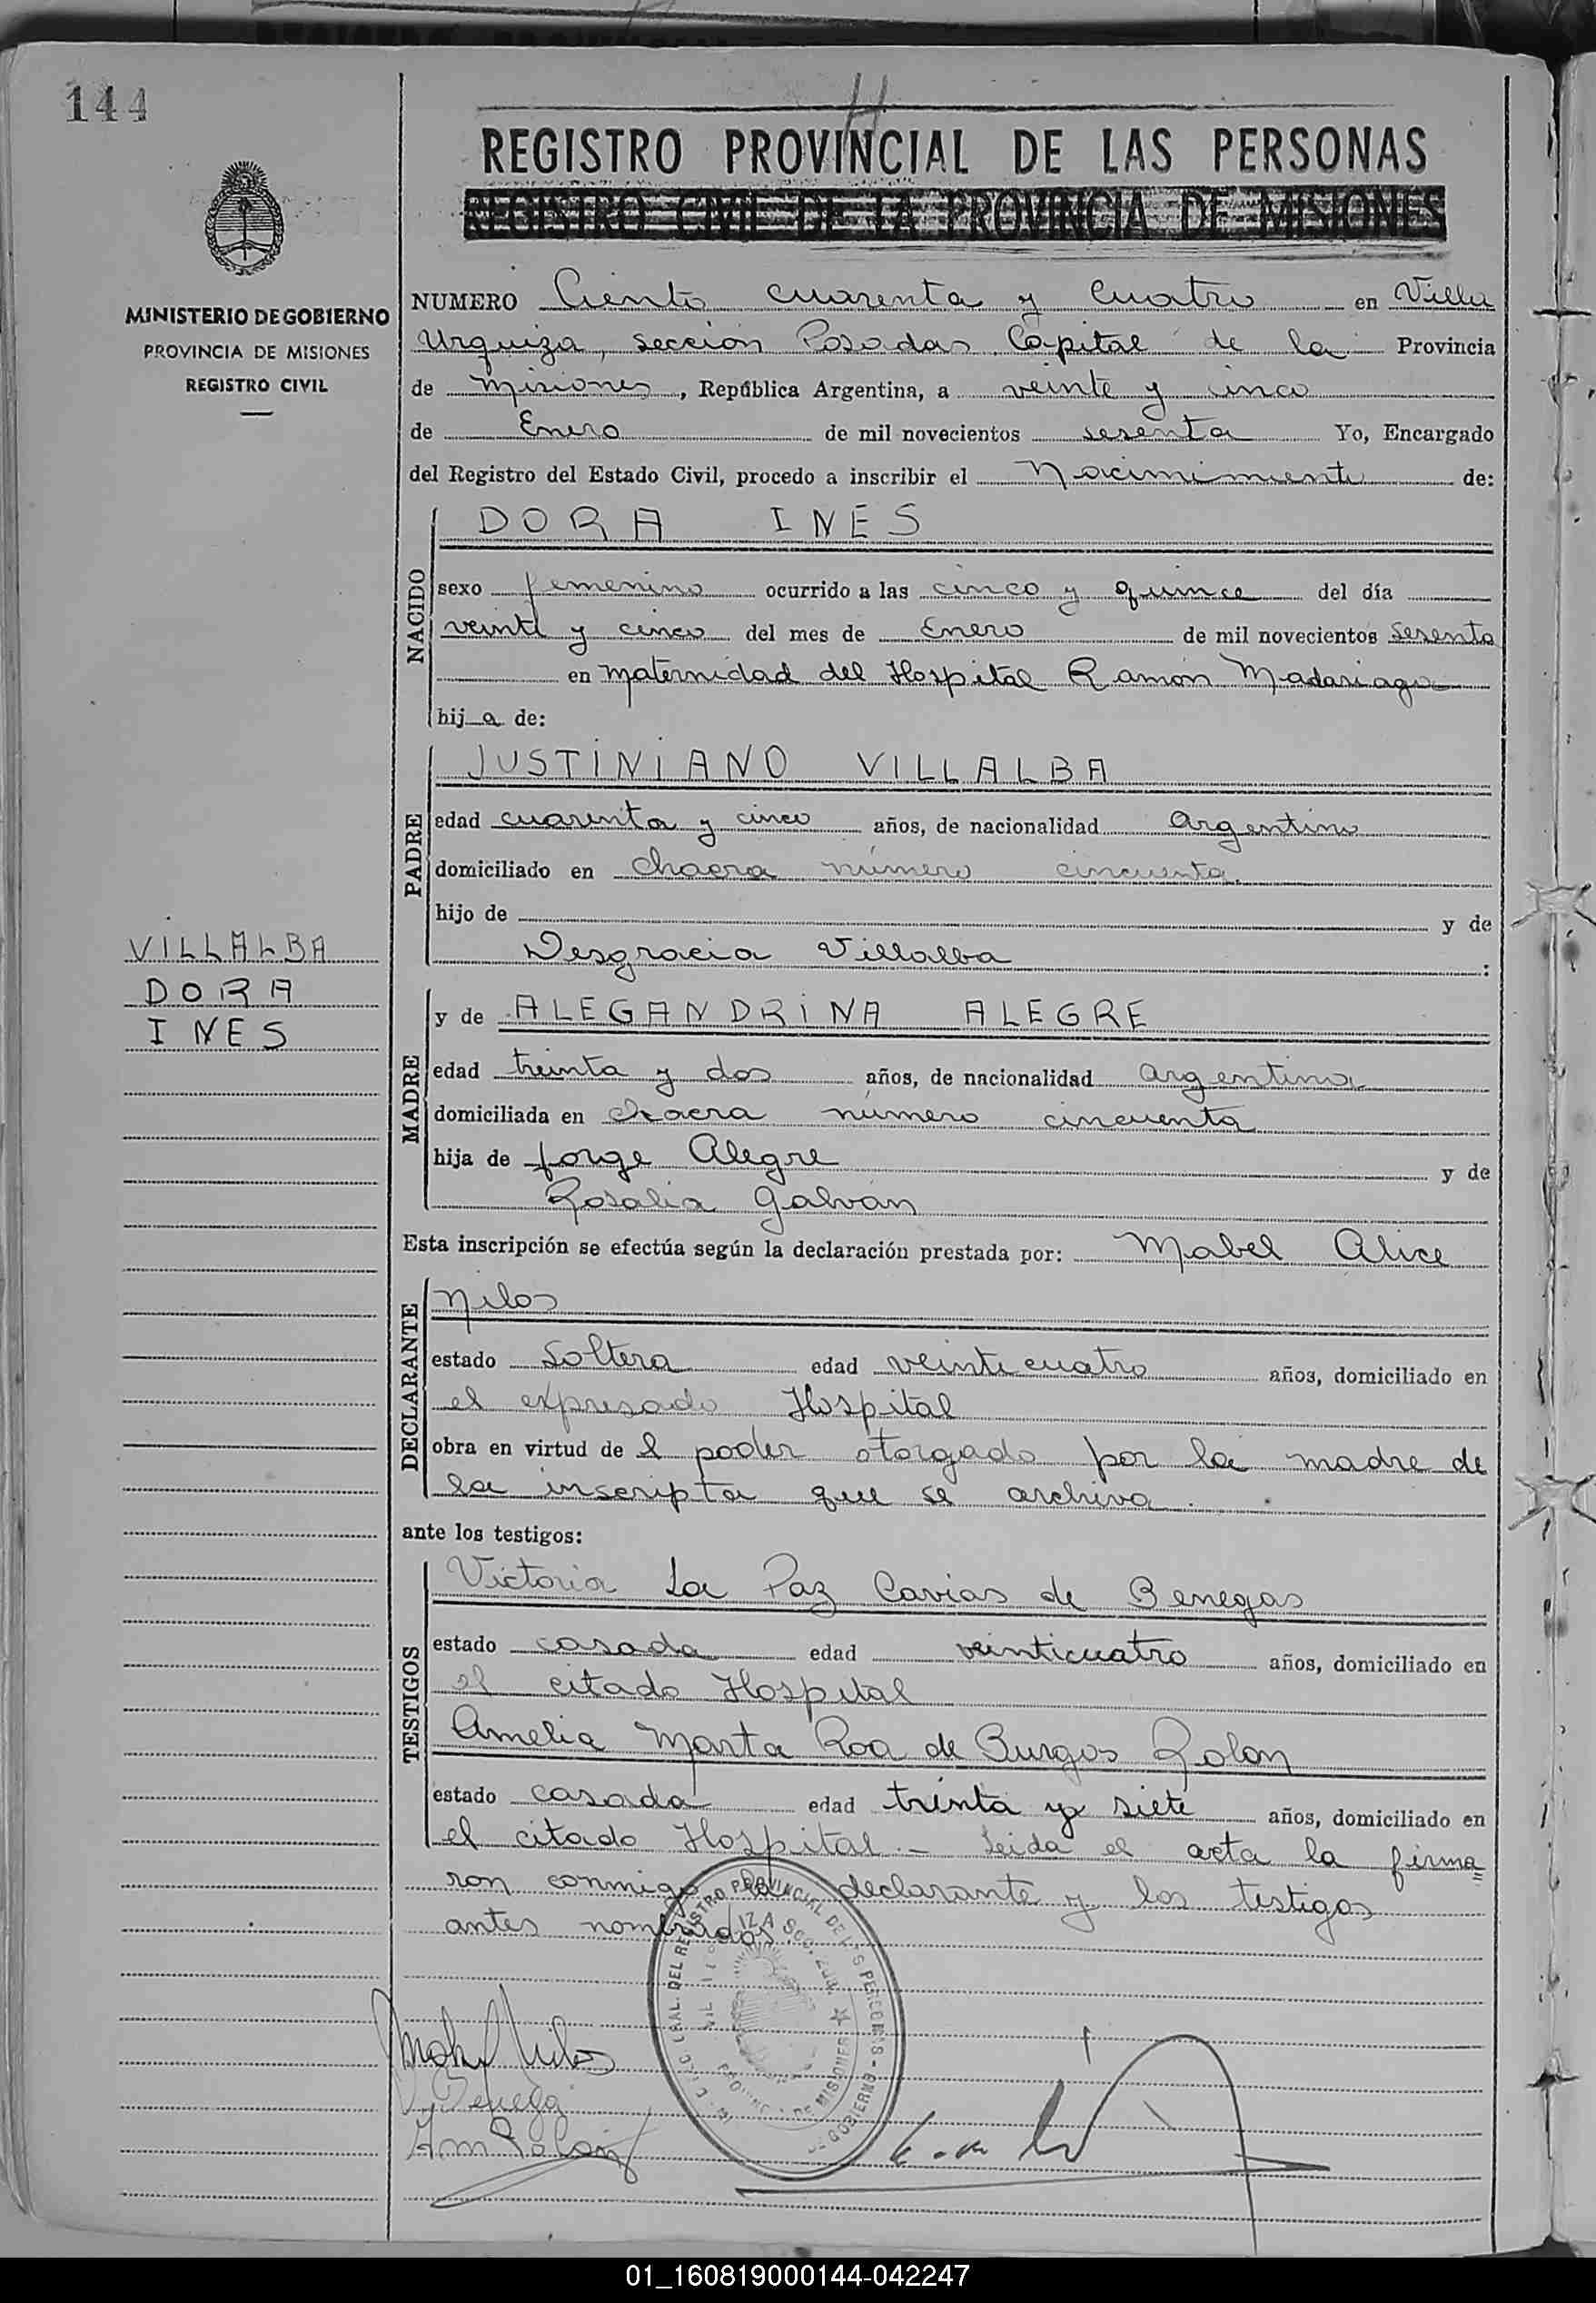 144
REGISTRO PROVINCIAL DE LAS PERSONAS
REGISTRO CIVIL DE LA PROVINCIA DE MISIONES
MINISTERIO DE GOBIERNO
PROVINCIA DE MISIONES
REGISTRO CIVIL
NUMERO Ciento cuarenta y Cuatro en Villa
Urquiza, sección Posadas Capital de la Provincia
de Misiones, República Argentina, a veinte y cinco
de Enero de mil novecientos sesenta Yo, Encargado
del Registro del Estado Civil, procedo a inscribir el Nacimimiento de:
NACIDO
DORA INES
sexo femenino ocurrido a las cinco y quince del día
veinte y cinco del mes de Enero de mil novecientos Sesenta
en Maternidad del Hospital Ramón Madariaga
hij a de:
PADRE
JUSTINIANO VILLALBA
edad cuarenta y cinco años, de nacionalidad Argentino
domiciliado en chacra número cincuenta.
hijo de y de
Desgracia Villalba :
VILLALBA
DORA
INES
MADRE
y de ALEGANDRINA ALEGRE
edad treinta y dos años, de nacionalidad argentina
domiciliada en chacra número cincuenta
hija de Jorge Alegre y de
Rosalia Galván
Esta inscripción se efectúa según la declaración prestada por: Mabel Alice
DECLARANTE
Nilos
estado Soltera edad veinticuatro años, domiciliado en
el expresado Hospital
obra en virtud de l poder otorgado por la madre de
la inscripta que se archiva.
ante los testigos:
TESTIGOS
Victoria La Paz Cavias de Benegas
estado casada edad veinticuatro años, domiciliado en
el citado Hospital
Amelia Marta Roa de Burgos Rolon
estado casada edad trinta y siete años, domiciliado en
el citado Hospital.- Leida el acta la firma=
ron conmigo la declarante y los testigos
antes nombrados.
DEL REGISTRO PROVINCIAL DE LAS PERSONAS - GOBIERNO
DE MISIONES
01_160819000144-042247